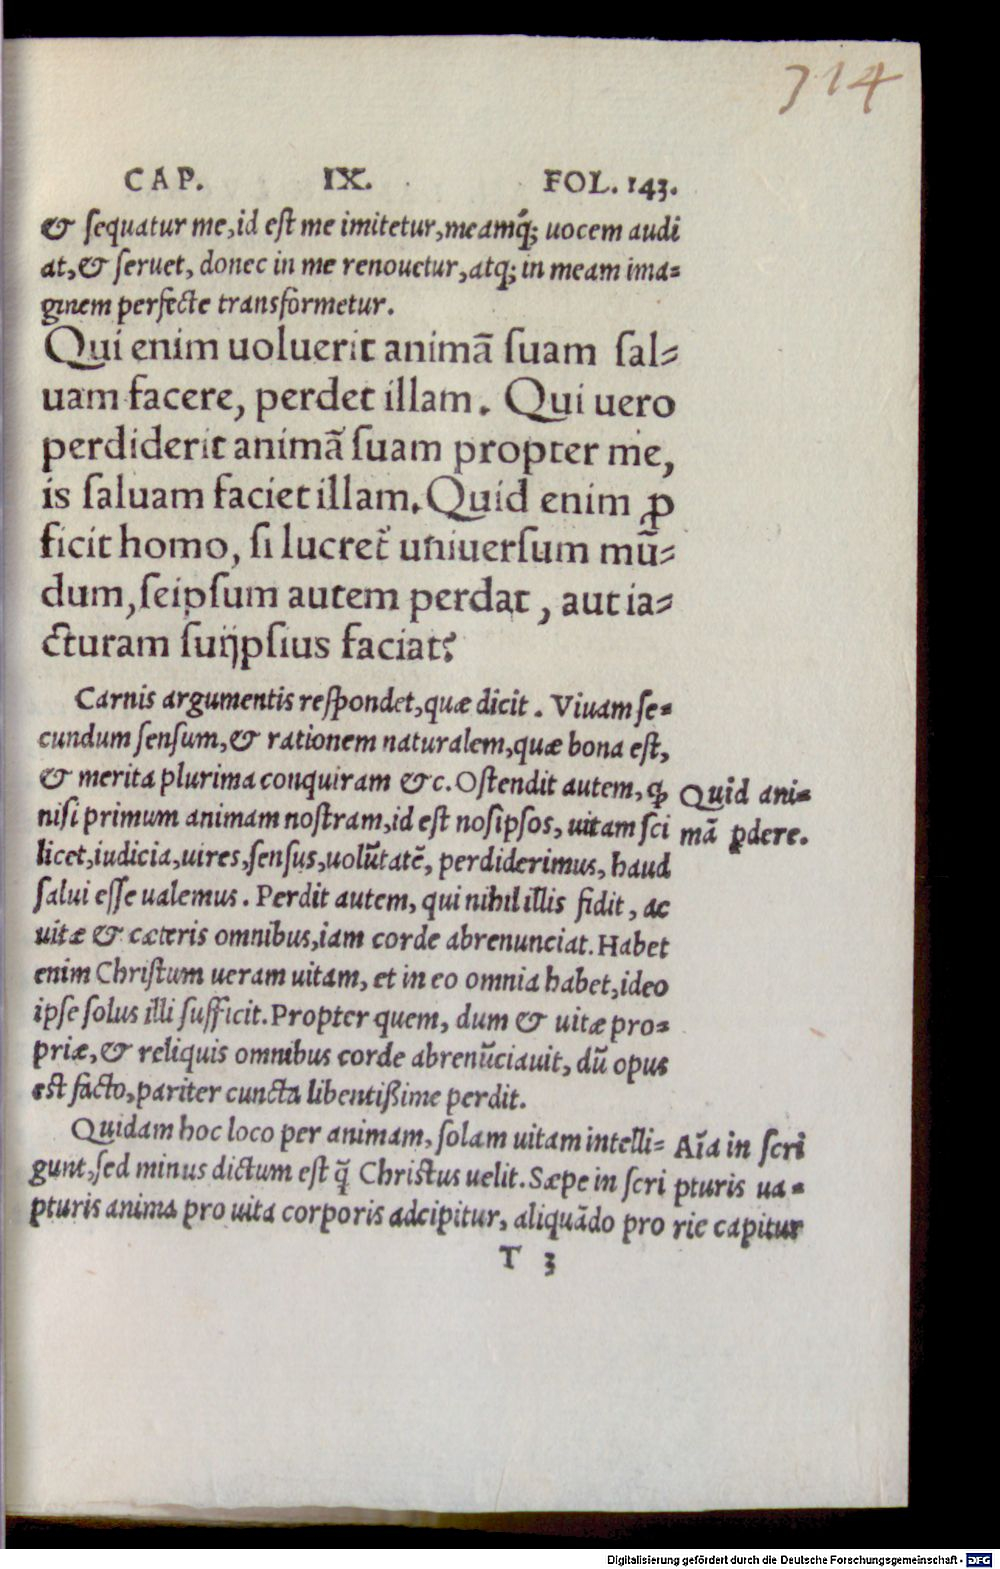 314
CAP. IX. FOL. 143.
& ſequatur me, id eſt me imitetur, meamq́; uocem audi
at, & ſeruet, donec in me renouetur, atq; in meam ima⸗
ginem perfecte transformetur.
Qui enim uoluerit animā ſuam ſal⸗
uam facere, perdet illam. Qui uero
perdiderit animā ſuam propter me,
is ſaluam faciet illam. Quid enim ꝓ
ficit homo, ſi lucret᷑ uniuerſum mū⸗
dum, ſeipſum autem perdat, aut ia⸗
cturam ſuijpſius faciat?
Carnis argumentis reſpondet, quæ dicit. Viuam ſe⸗
cundum ſenſum, & rationem naturalem, quæ bona eſt,
& merita plurima conquiram &c. Oſtendit autem, ꝙ
niſi primum animam noſtram, id eſt noſipſos, uitam ſci
licet, iudicia, uires, ſenſus, uolūtatē, perdiderimus, haud
ſalui eſſe ualemus. Perdit autem, qui nihil illis fidit, ac
uitæ & cæteris omnibus, iam corde abrenunciat. Habet
enim Chriſtum ueram uitam, et in eo omnia habet, ideo
ipſe ſolus illi ſufficit. Propter quem, dum & uitæ pro⸗
priæ, & reliquis omnibus corde abrenūciauit, dū opus
eſt facto, pariter cuncta libentißime perdit.
Quidam hoc loco per animam, ſolam uitam intelli⸗
gunt, ſed minus dictum eſt q̄ Chriſtus uelit. Sæpe in ſcri
pturis anima pro uita corporis adcipitur, aliquādo pro
T 3
Quid ani⸗
mā ꝑdere.
Aīa in ſcri
pturis ua⸗
rie capitur
Digitalisierung gefördert durch die Deutsche Forschungsgemeinschaft - DFG